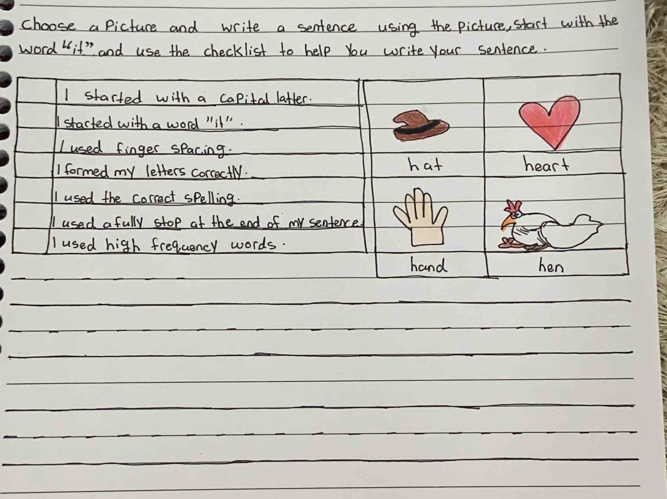 Choose a Picture and write a sentence using the Picture, start with the
word "it" and use the checklist to help You write Your sentence.
I started with a capital latter.
I started with a word "it".
I used finger spacing.
I formed my letters correctly.
I used the correct spelling.
I used a fully stop at the end of my sentence.
I used high frequency words.
hat heart
hand hen